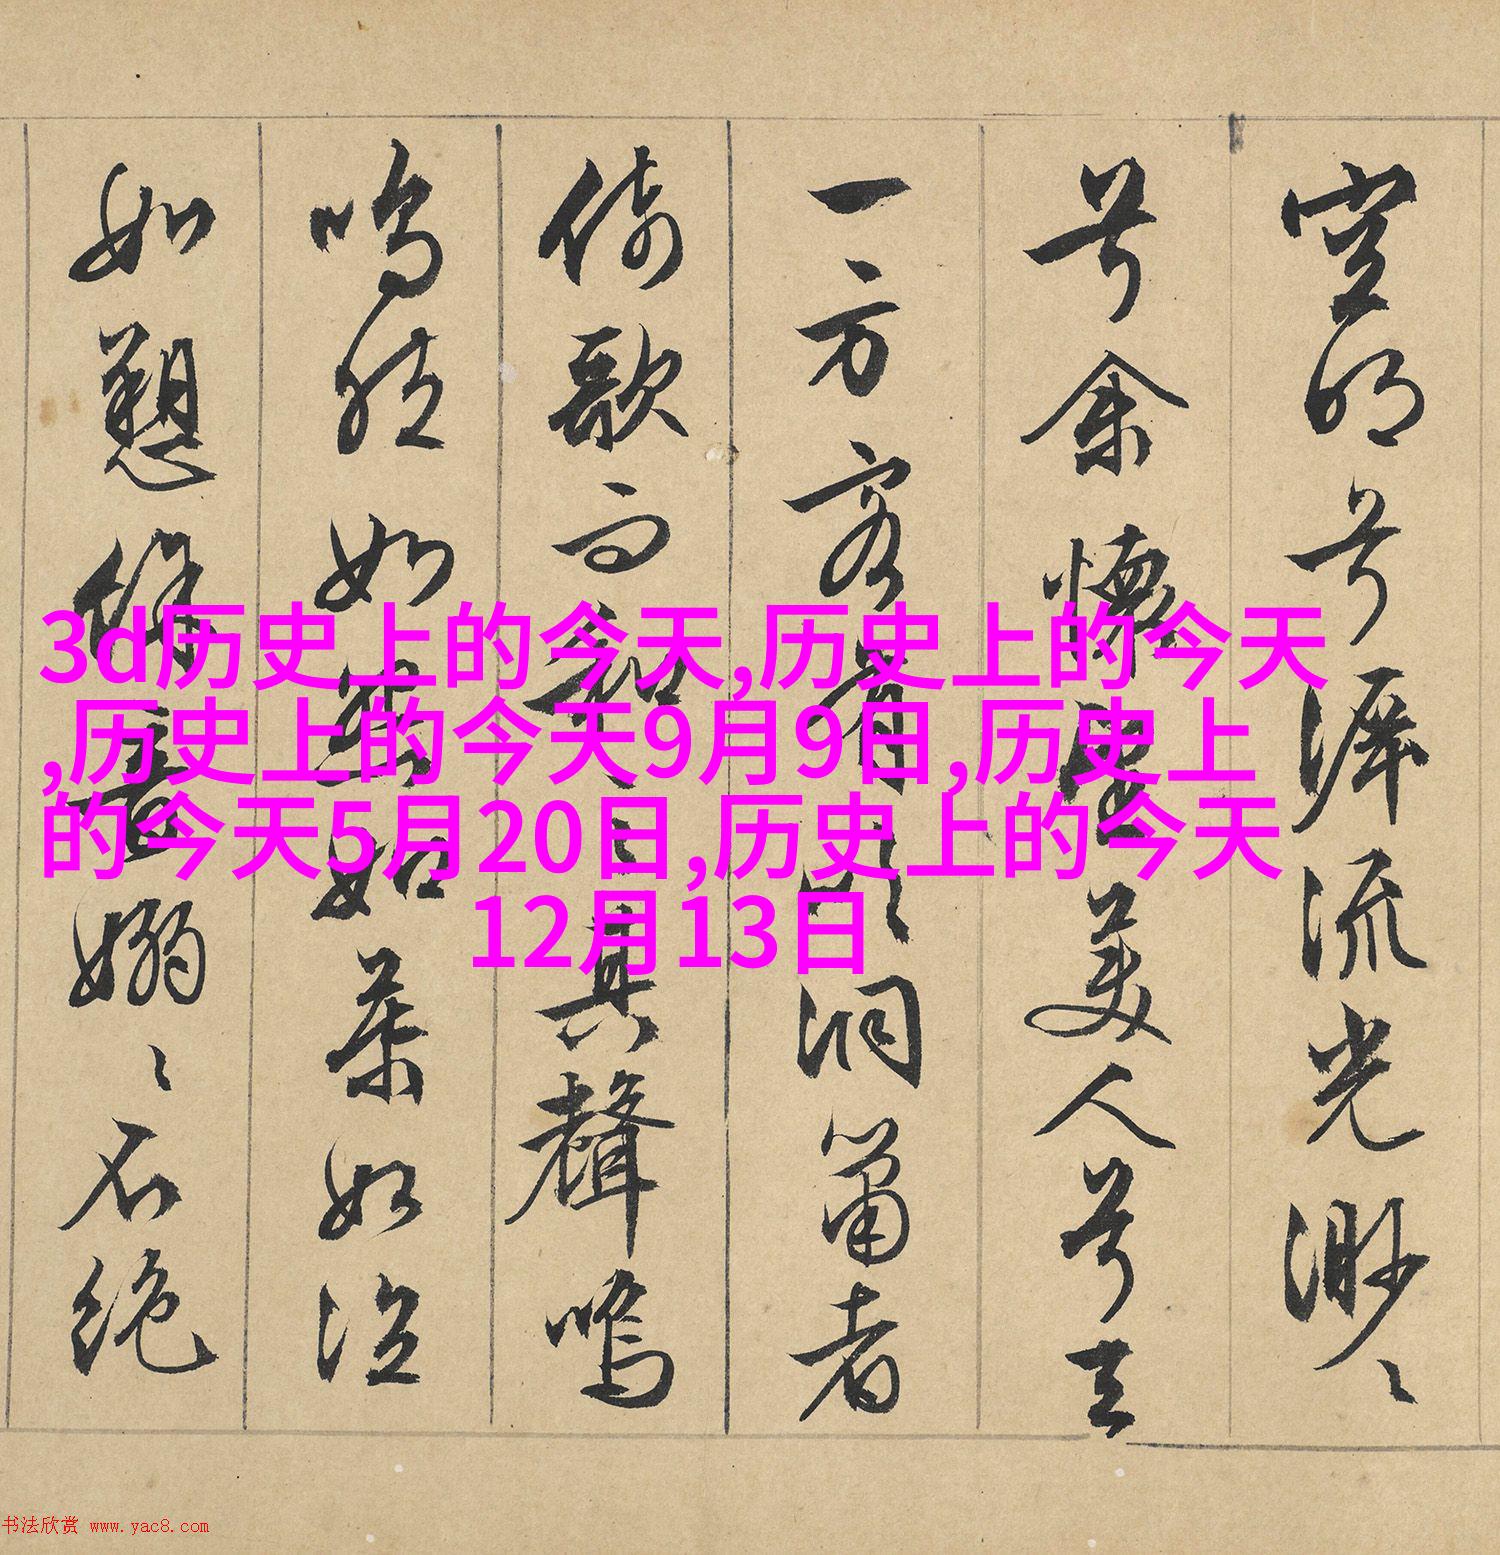 空明兮泝流光渺〻
兮余懷望美人兮天
一方客有吹洞簫者
倚歌而和之其聲嗚
嗚然如怨如慕如泣
如愬餘音嫋〻不絕
3d历史上的今天,历史上的今天
,历史上的今天9月9日,历史上
的今天5月20日,历史上的今天
12月13日
书法欣赏 www.yac8.com